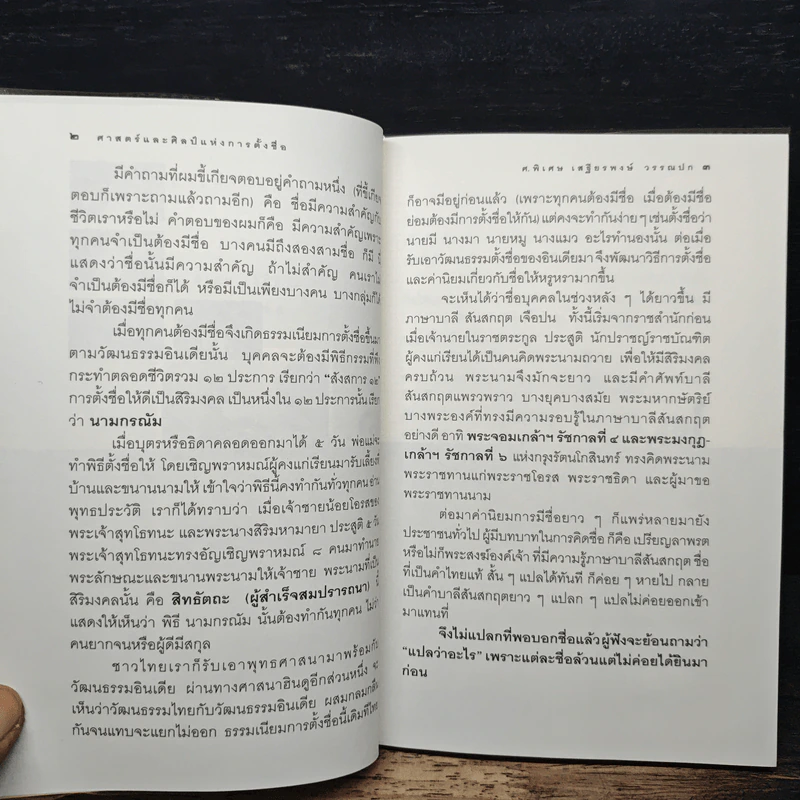 ๒ ศาสตร์และศิลป์แห่งการตั้งชื่อ
มีคำถามที่ผมขี้เกียจตอบอยู่คำถามหนึ่ง (ที่ขี้เกียจ
ตอบก็เพราะถามแล้วถามอีก) คือ ชื่อมีความสำคัญกับ
ชีวิตเราหรือไม่ คำตอบของผมก็คือ มีความสำคัญเพราะ
ทุกคนจำเป็นต้องมีชื่อ บางคนมีถึงสองสามชื่อ ก็มี
แสดงว่าชื่อนั้นมีความสำคัญ ถ้าไม่สำคัญ คนเราไม่
จำเป็นต้องมีชื่อก็ได้ หรือมีเป็นเพียงบางคน บางกลุ่มก็ได้
ไม่จำต้องมีชื่อทุกคน
เมื่อทุกคนต้องมีชื่อจึงเกิดธรรมเนียมการตั้งชื่อขึ้นมา
ตามวัฒนธรรมอินเดียนั้น บุคคลจะต้องมีพิธีกรรมที่พึง
กระทำตลอดชีวิตรวม ๑๒ ประการ เรียกว่า “สังสการ ๑๒”
การตั้งชื่อให้ดีเป็นสิริมงคล เป็นหนึ่งใน ๑๒ ประการนั้น เรียก
ว่า นามกรณัม
เมื่อบุตรหรือธิดาคลอดออกมาได้ ๕ วัน พ่อแม่จะ
ทำพิธีตั้งชื่อให้ โดยเชิญพราหมณ์ผู้คงแก่เรียนมารับเลี้ยงที่
บ้านและขนานนามให้ เข้าใจว่าพิธีนี้คงทำกันทั่วทุกคน อ่าน
พุทธประวัติ เราก็ได้ทราบว่า เมื่อเจ้าชายน้อยโอรสของ
พระเจ้าสุทโธทนะ และพระนางสิริมหามายา ประสูติ ๕ วัน
พระเจ้าสุทโธทนะทรงอัญเชิญพราหมณ์ ๘ คนมาทำนาย
พระลักษณะและขนานพระนามให้เจ้าชาย พระนามที่เป็น
สิริมงคลนั้น คือ สิทธัตถะ (ผู้สำเร็จสมปรารถนา)
แสดงให้เห็นว่า พิธี นามกรณัม นั้นต้องทำกันทุกคน ไม่ว่า
คนยากจนหรือผู้ดีมีสกุล
ชาวไทยเราก็รับเอาพุทธศาสนามาพร้อมกับ
วัฒนธรรมอินเดีย ผ่านทางศาสนาฮินดูอีกส่วนหนึ่ง จะ
เห็นว่าวัฒนธรรมไทยกับวัฒนธรรมอินเดีย ผสมกลมกลืน
กันจนแทบจะแยกไม่ออก ธรรมเนียมการตั้งชื่อนี้เดิมทีไทย
ศ.พิเศษ เสฐียรพงษ์ วรรณปก ๓
ก็อาจมีอยู่ก่อนแล้ว (เพราะทุกคนต้องมีชื่อ เมื่อต้องมีชื่อ
ย่อมต้องมีการตั้งชื่อให้กัน) แต่คงจะทำกันง่ายๆ เช่นตั้งชื่อว่า
นายมี นางมา นายหมู นางแมว อะไรทำนองนั้น ต่อเมื่อ
รับเอาวัฒนธรรมตั้งชื่อของอินเดียมา จึงพัฒนาวิธีการตั้งชื่อ
และค่านิยมเกี่ยวกับชื่อให้หรูหรามากขึ้น
จะเห็นได้ว่าชื่อบุคคลในช่วงหลัง ๆ ได้ยาวขึ้น มี
ภาษาบาลี สันสกฤต เจือปน ทั้งนี้เริ่มจากราชสำนักก่อน
เมื่อเจ้านายในราชตระกูล ประสูติ นักปราชญ์ราชบัณฑิต
ผู้คงแก่เรียนได้เป็นคนคิดพระนามถวาย เพื่อให้มีสิริมงคล
ครบถ้วน พระนามจึงมักจะยาว และมีคำศัพท์บาลี
สันสกฤตแพรวพราว บางยุคบางสมัย พระมหากษัตริย์
บางพระองค์ที่ทรงมีความรอบรู้ในภาษาบาลีสันสกฤต
อย่างดี อาทิ พระจอมเกล้าฯ รัชกาลที่ ๔ และพระมงกุฎ-
เกล้าฯ รัชกาลที่ ๖ แห่งกรุงรัตนโกสินทร์ ทรงคิดพระนาม
พระราชทานแก่พระราชโอรส พระราชธิดา และผู้มาขอ
พระราชทานนาม
ต่อมาค่านิยมการมีชื่อยาว ๆ ก็แพร่หลายมายัง
ประชาชนทั่วไป ผู้มีบทบาทในการคิดชื่อ ก็คือ เปรียญลาพรต
หรือไม่ก็พระสงฆ์องค์เจ้า ที่มีความรู้ภาษาบาลีสันสกฤต ชื่อ
ที่เป็นคำไทยแท้ สั้น ๆ แปลได้ทันที ก็ค่อย ๆ หายไป กลาย
เป็นคำบาลีสันสกฤตยาว ๆ แปลก ๆ แปลไม่ค่อยออกเข้า
มาแทนที่
จึงไม่แปลกที่พอบอกชื่อแล้วผู้ฟังจะย้อนถามว่า
“แปลว่าอะไร” เพราะแต่ละชื่อล้วนแต่ไม่ค่อยได้ยินมา
ก่อน